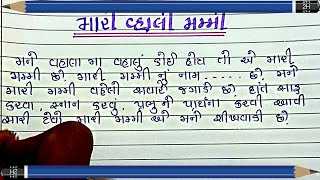 મારી વ્હાલી મમ્મી
મને વહાલા માં વહાલું કોઈ હોય તો એ મારી
મમ્મી છે. મારી મમ્મી નું નામ ..... છે. મને
મારી મમ્મી વહેલી સવારે જગાડે છે. દાંત સાફ
કરવા, સ્નાન કરવું, પ્રભુ ની પ્રાર્થના કરવી આવી
સારી ટેવો મારી મમ્મી એ મને શીખવાડી છે.